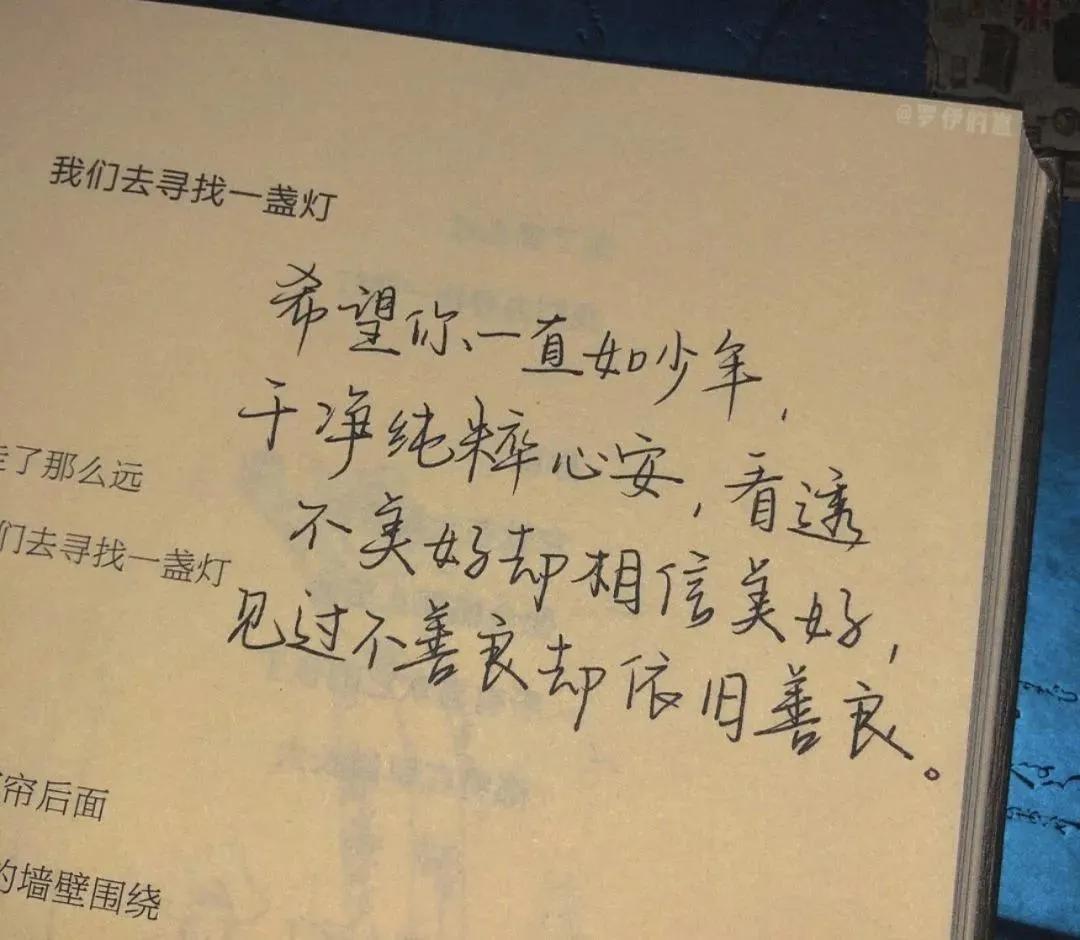 @罗伊的嵐
我们去寻找一盏灯
希望你一直如少年,
干净纯粹心安,看透
不美好却相信美好,
见过不善良却依旧善良。
走了那么远
们去寻找一盏灯
帘后面
的墙壁围绕